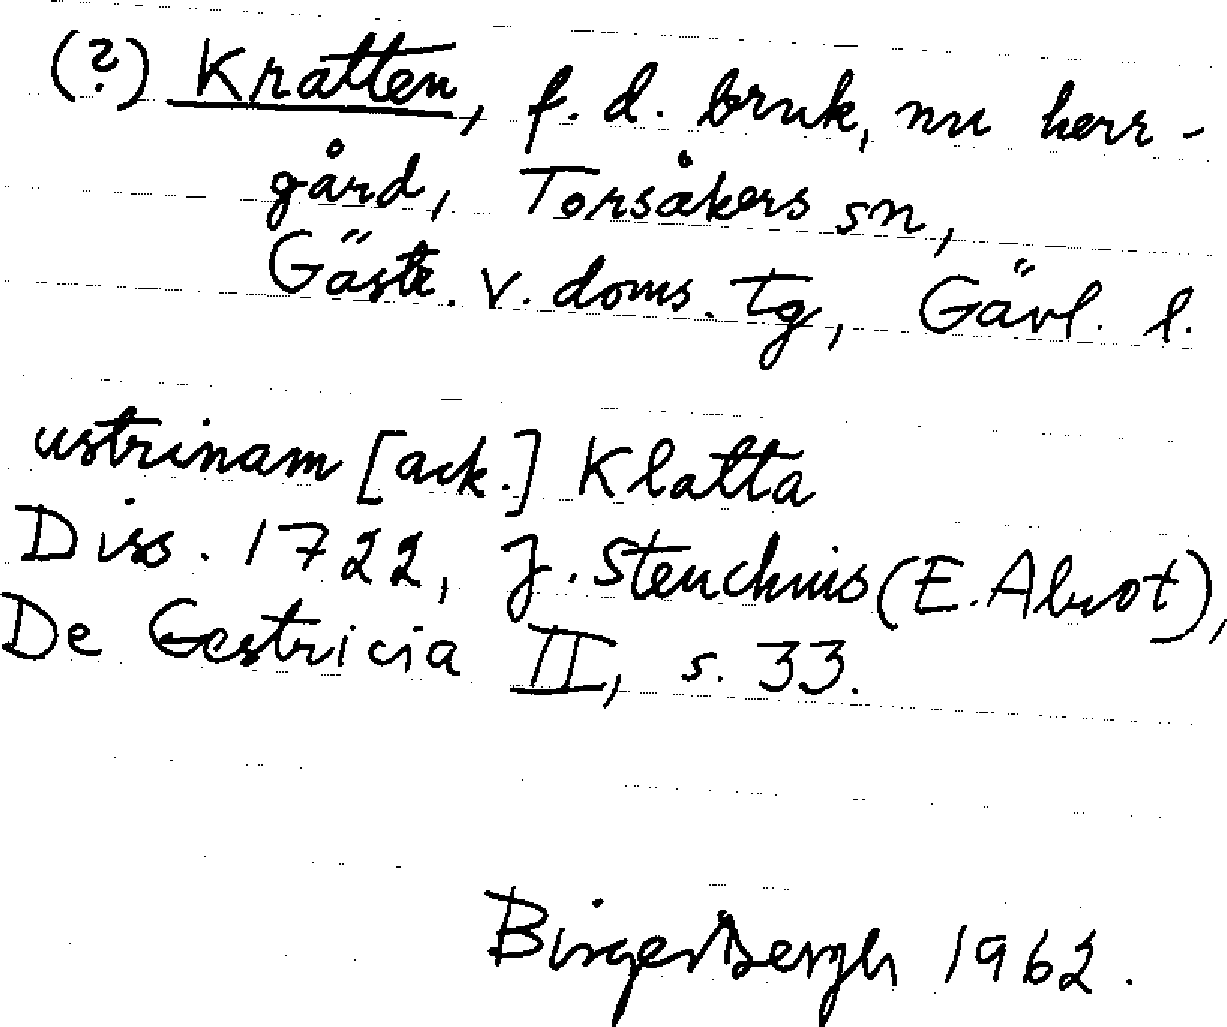 (?) Kratten, f. d. bruk, nu herr-
gård, Torsåkers sn,
Gästr. v. doms. tg, Gävl. l.
ustrinam [ack.] Klatta
Diss. 1722, J. Steuchius (E. Abrot),
De Gestricia II, s. 33.
Birger Bergh 1962.